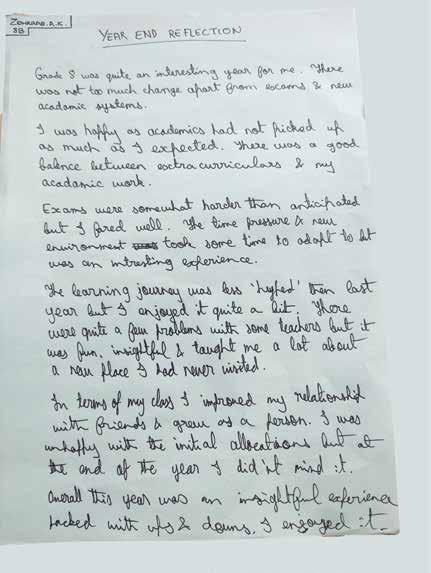 ZOHRAAB.A.K.
8B
YEAR END REFLECTION
Grade 8 was quite an interesting year for me. There
was not to much change apart from excams & new
acadamic systems.
I was happy as academics had not picked up
as much as I expected. There was a good
balence between exctracurriculars & my
acadamic work.
Exams were somewhat harder than anticipated
but I fared well. The time pressure & new
environment took some time to adapt to but
was an intresting experience.
The learning journey was less 'hyped' then last
year but I enjoyed it quite a bit. There
were quite a few problems with some teachers but it
was fun, insightful & taught me a lot about
a new place I had never visited.
In terms of my class I improved my relationship
with friends & grew as a person. I was
unhappy with the initial allocations but at
the end of the year I did'nt mind it.
Overall this year was an insightful experience
packed with ups & downs. I enjoyed it.